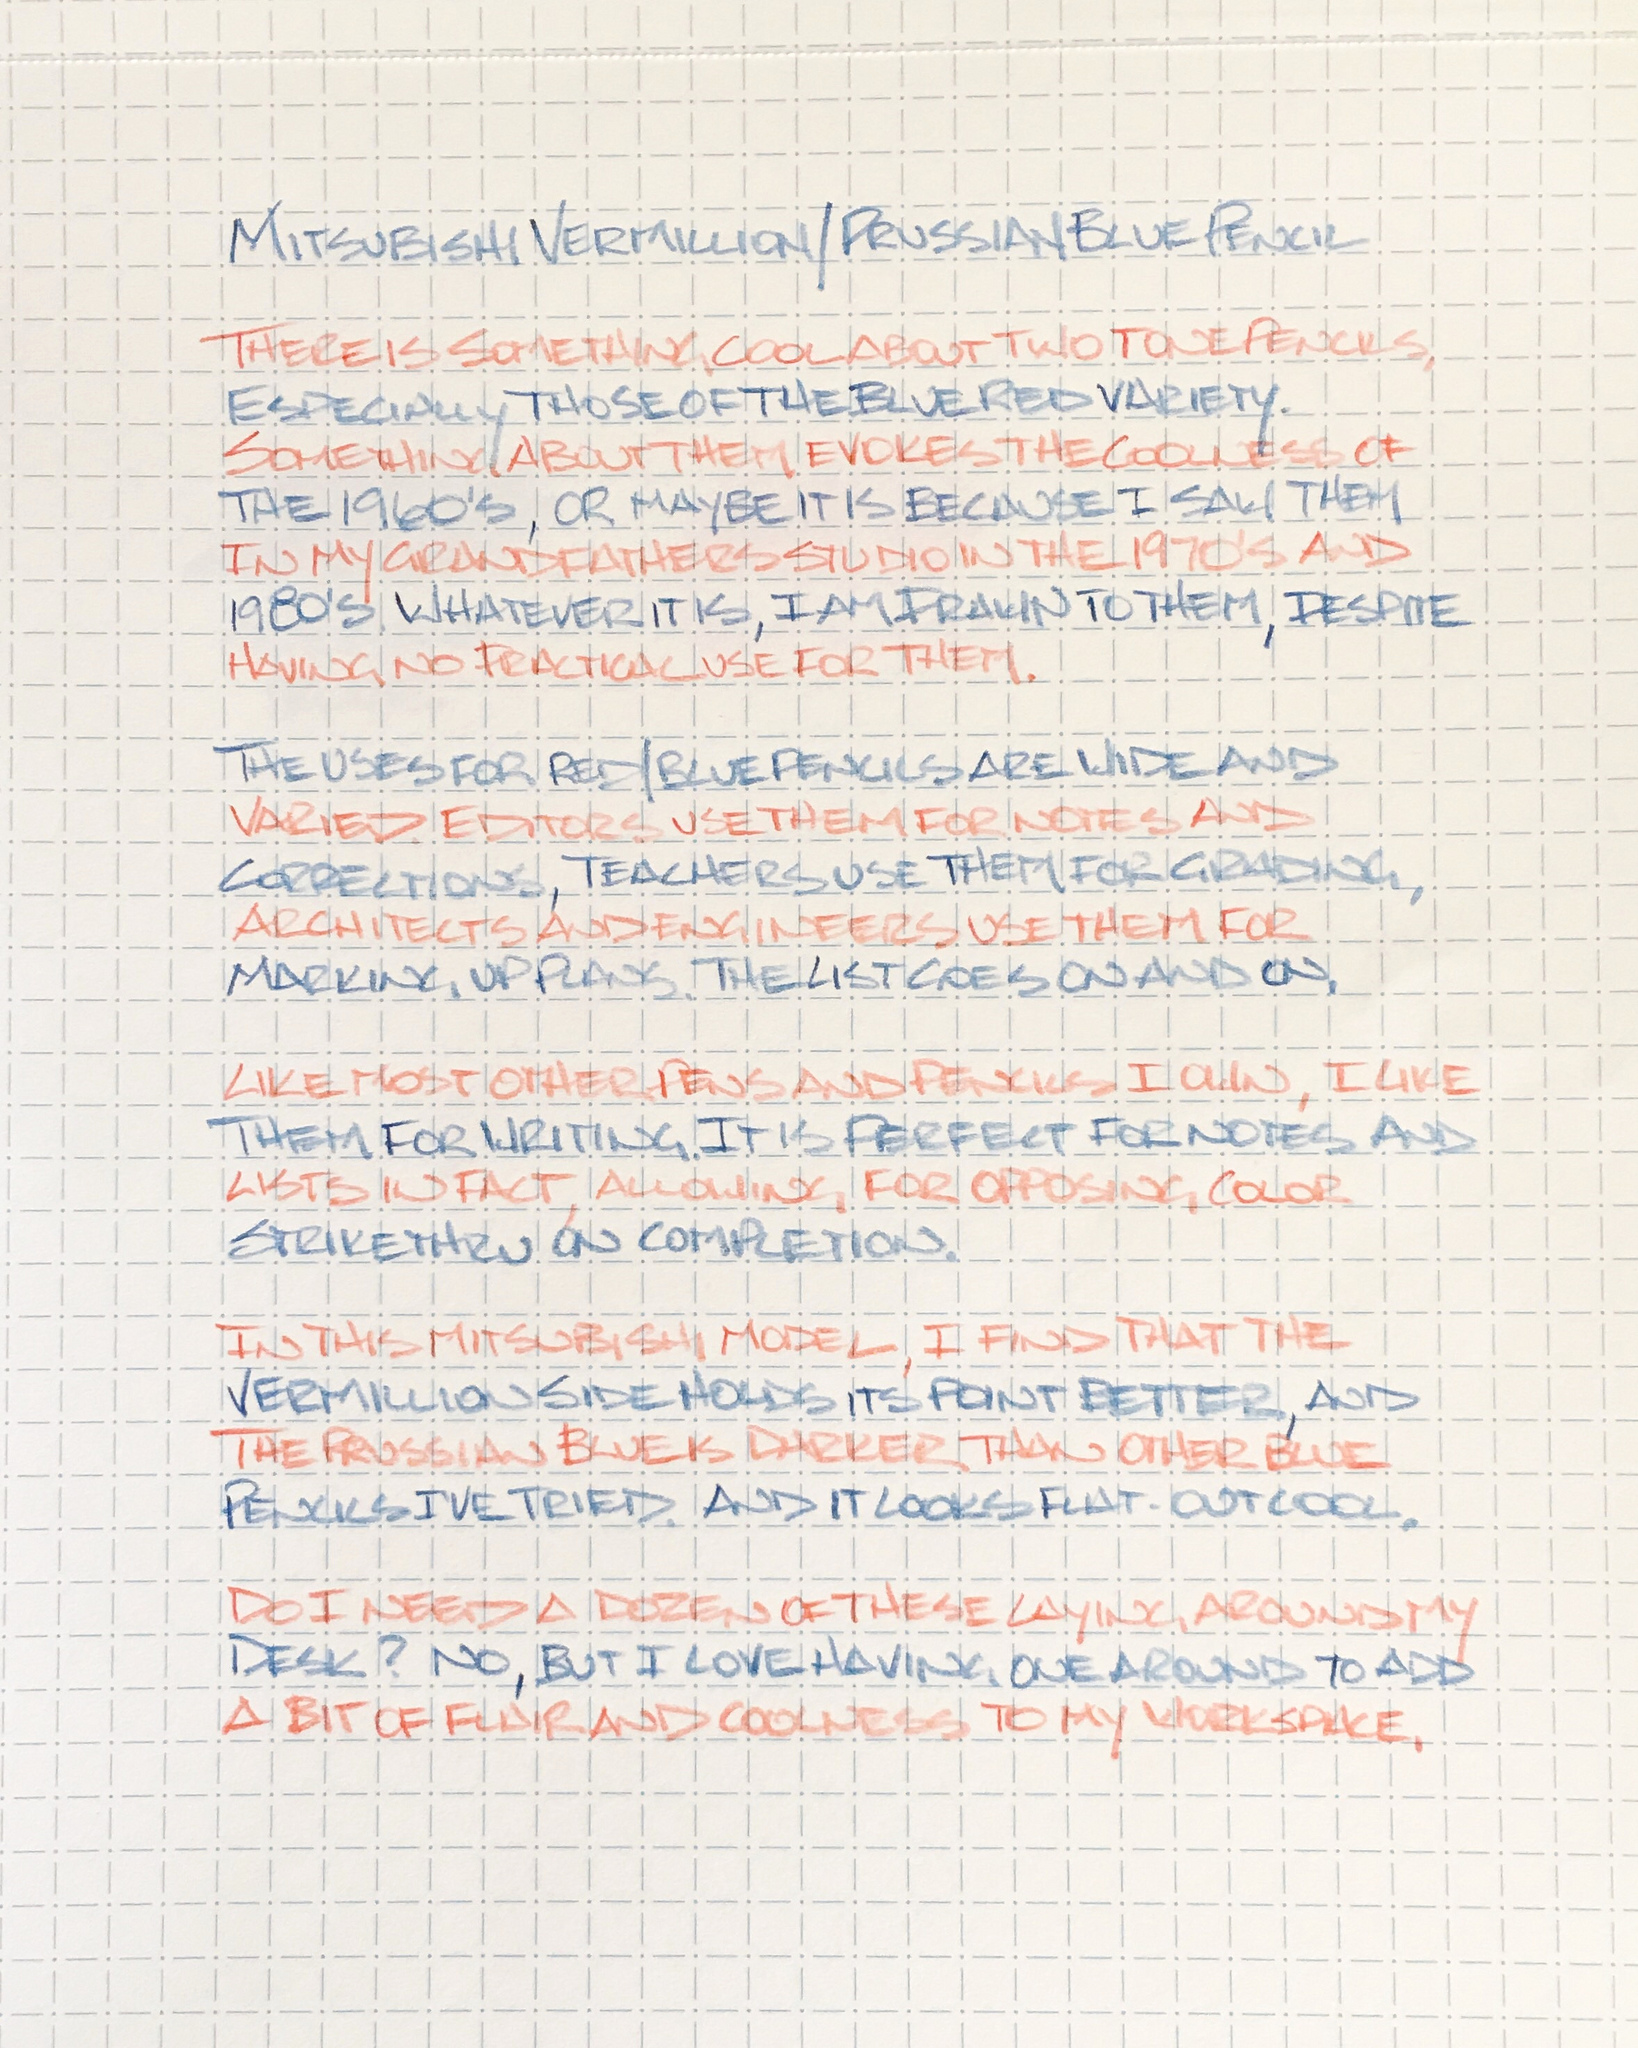 MITSUBISHI VERMILLION/PRUSSIAN BLUE PENCIL
THERE IS SOMETHING COOL ABOUT TWO TONE PENCILS,
ESPECIALLY THOSE OF THE BLUE RED VARIETY.
SOMETHING ABOUT THEM EVOKES THE COOLNESS OF
THE 1960'S, OR MAYBE IT IS BECAUSE I SAW THEM
IN MY GRANDFATHERS STUDIO IN THE 1970'S AND
1980'S. WHATEVER IT IS, I AM DRAWN TO THEM, DESPITE
HAVING NO PRACTICAL USE FOR THEM.
THE USES FOR RED/BLUE PENCILS ARE WIDE AND
VARIED. EDITORS USE THEM FOR NOTES AND
CORRECTIONS, TEACHERS USE THEM FOR GRADING,
ARCHITECTS AND ENGINEERS USE THEM FOR
MARKING UP PLANS. THE LIST GOES ON AND ON.
LIKE MOST OTHER PENS AND PENCILS I OWN, I LIKE
THEM FOR WRITING. IT IS PERFECT FOR NOTES AND
LISTS IN FACT, ALLOWING FOR OPPOSING COLOR
STRIKETHRU ON COMPLETION.
IN THIS MITSUBISHI MODEL, I FIND THAT THE
VERMILLION SIDE HOLDS ITS POINT BETTER, AND
THE PRUSSIAN BLUE IS DARKER THAN OTHER BLUE
PENCILS I'VE TRIED. AND IT LOOKS FLAT-OUT COOL.
DO I NEED A DOZEN OF THESE LAYING AROUND MY
DESK? NO, BUT I LOVE HAVING ONE AROUND TO ADD
A BIT OF FLAIR AND COOLNESS TO MY WORKSPACE.